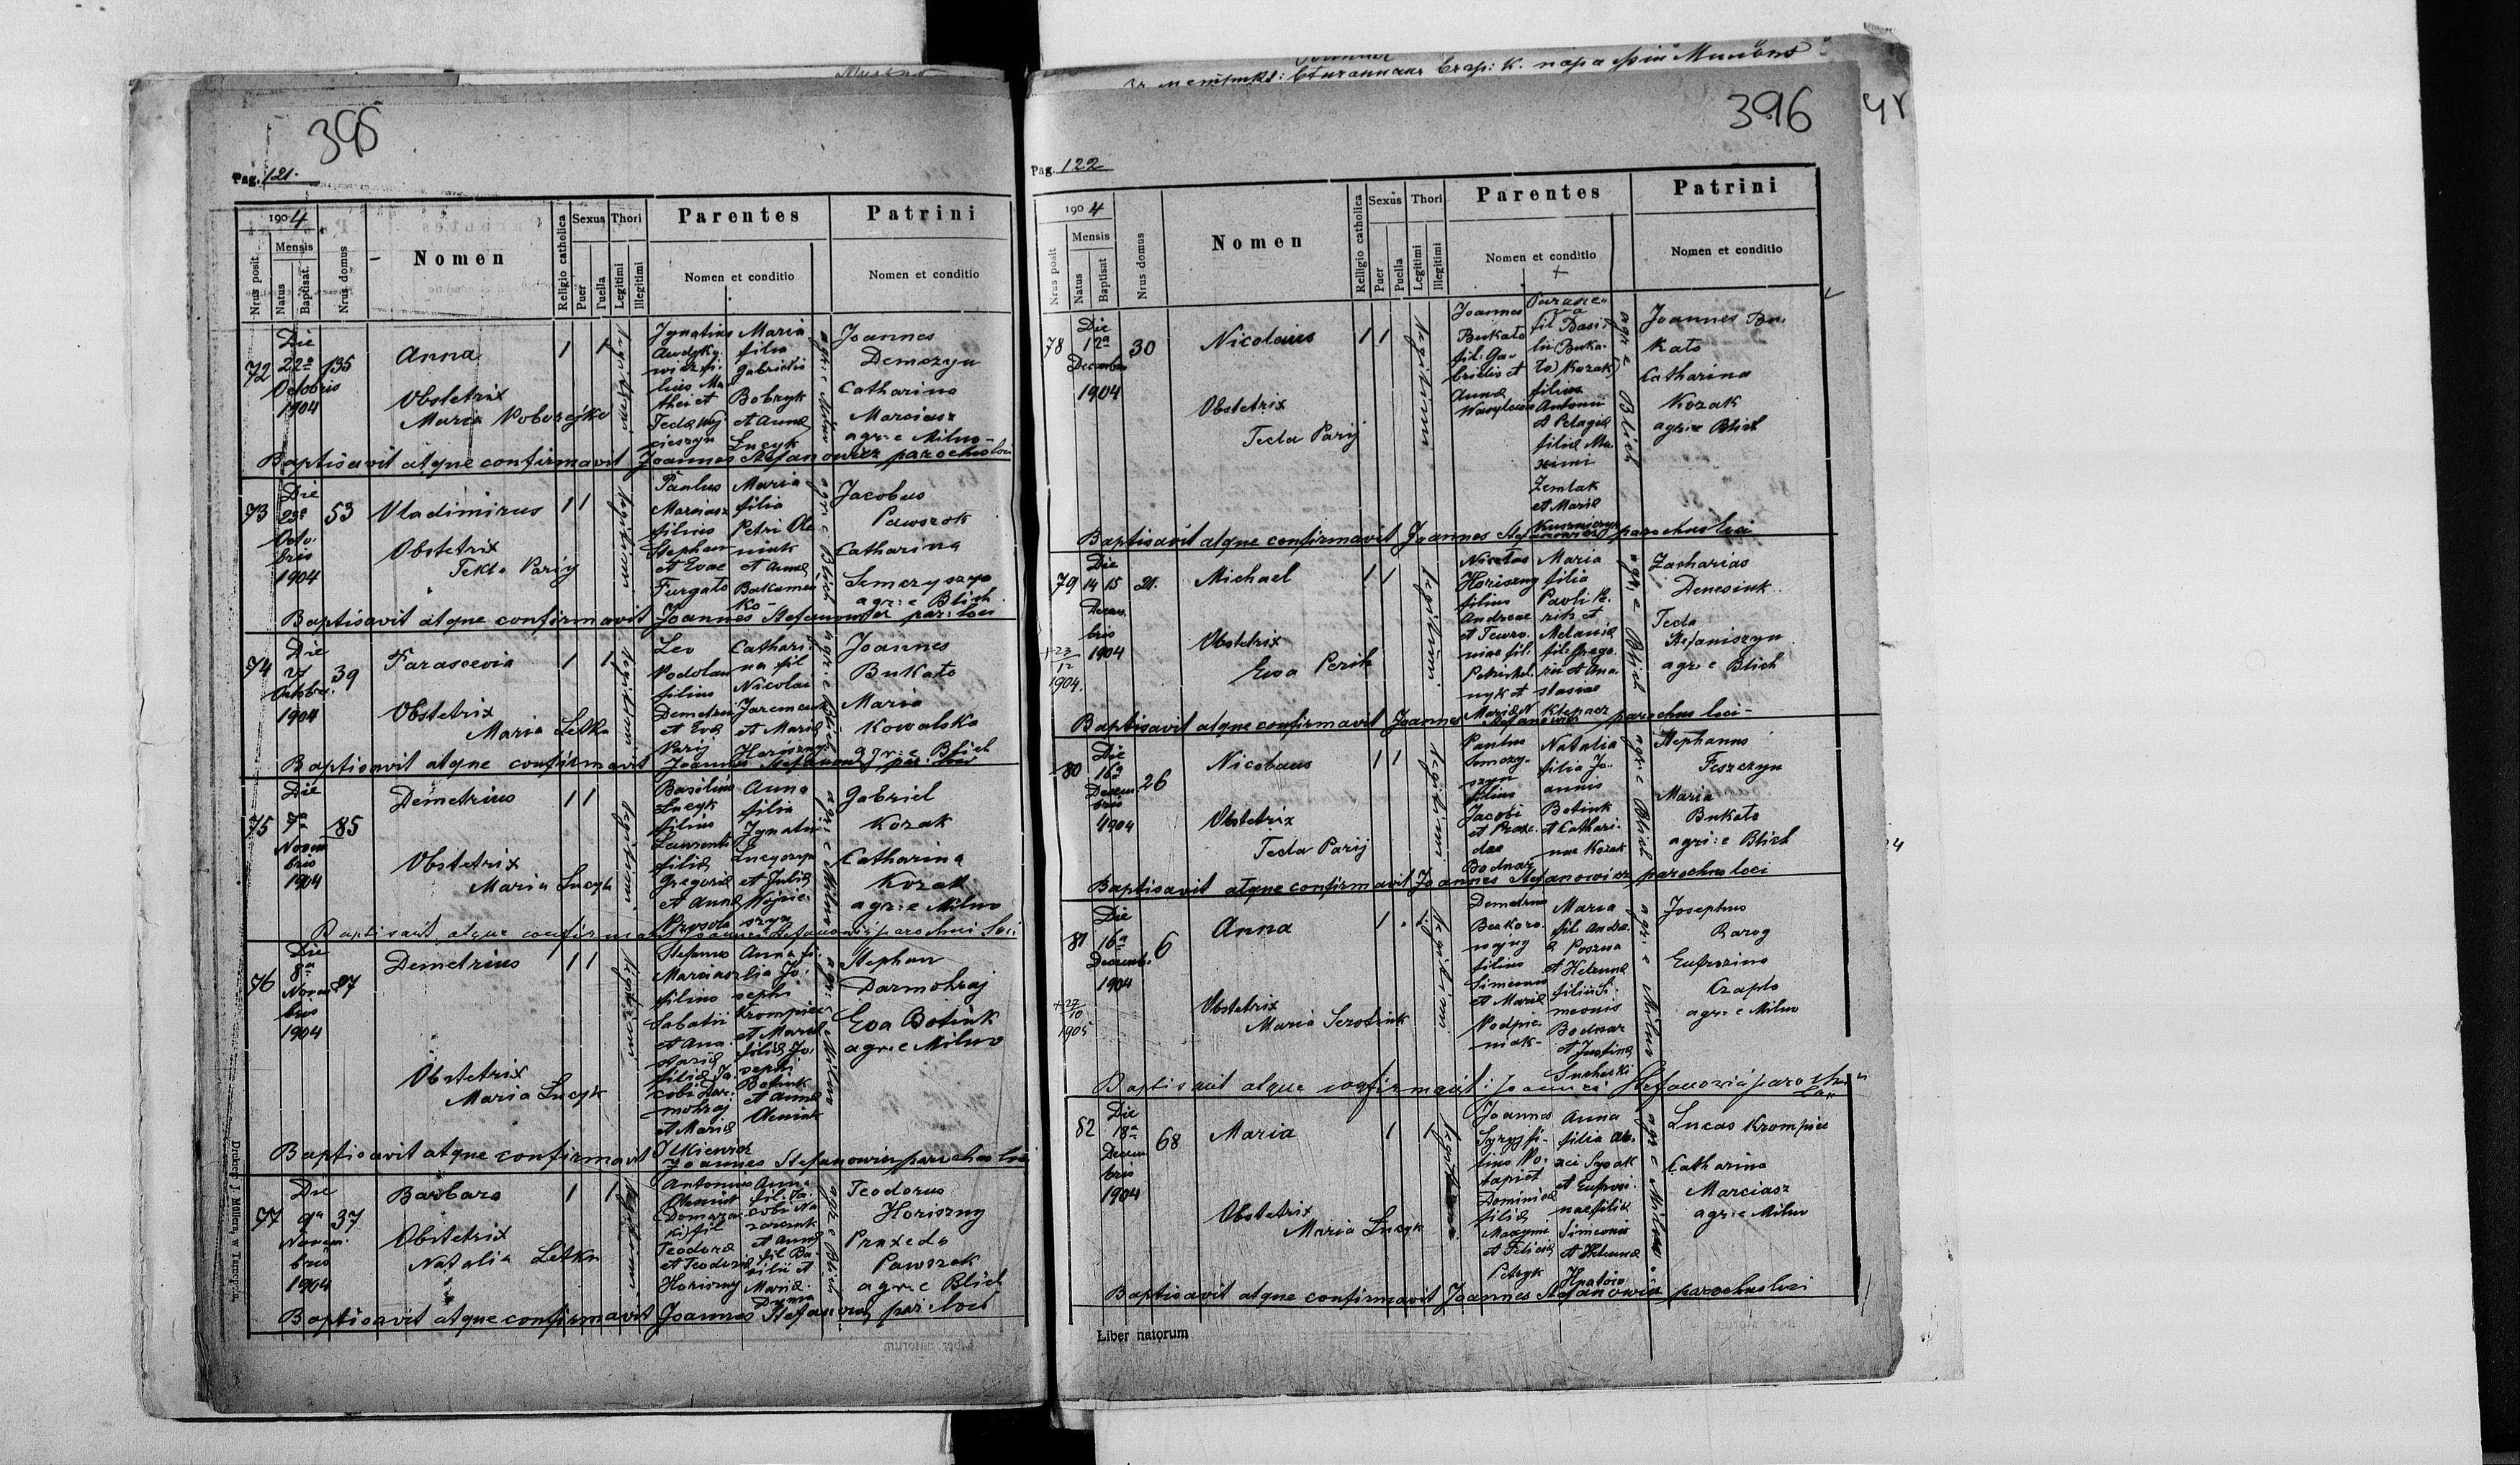 395
Pag. 121.
1904
Mensis
Nrus posit.
Natus
Baptisat.
Nrus domus
Nomen
Religio catholica
Sexus
Puer
Puella
Thori
Legitimi
Illegitimi
Parentes
Nomen et conditio
Patrini
Nomen et conditio
72
Die
22a
Octobris
1904
135
Anna
Obstetrix
Maria
1 1
legitimi
Ignatius
filius Ma
thei et
Tecla
Maria
filia
Gabrielis
Bobryk
et Anna
Lucyk
agr: e Milno
Joannes
Demczyn
Catharina
Marciasz
agr: e Milno
Baptisavit atque confirmavit Joannes Stefanowicz parochus loci
73
Die
23a
Octo
bris
1904
53
Vladimirus
Obstetrix
Tekla Parij
1 1
legitimi
Paulus
Marciasz
filius
Stephan
et Evae
Furgato
Maria
filia
Petri Ole
niuk
et Anna
agr: e Blich
Jacobus
Pawszok
Catharina
Semczyszyn
agr: e Blich
Baptisavit atque confirmavit Joannes Stefanowicz par: loci
74
Die
27
Octobr.
1904
39
Parascevia
Obstetrix
Maria Letka
1 1
legitimi
Leo
Podolan
filius
Demetrii
et Eva
Parij
Cathari
na fil
Nicolai
Jaremczuk
et Maria
Horiszny
agr: e Blich
Joannes
Bukato
Maria
Kowalska
agr: e Blich
Baptisavit atque confirmavit Joannes Stefanowicz par: loci
75
Die
7a
Novem
bris
1904
85
Demetrius
Obstetrix
Maria Lucyk
1 1
legitimi
Basilius
Lucyk
filius
Laurenti
filia
Gregoria
et Anna
Prysola
Anna
filia
Ignatii
et Julia
Wojcie
szyn
agr: e Milno
Gabriel
Kozak
Catharina
Kozak
agr: e Milno
Baptisavit atque confirmavit Joannes Stefanowicz parochus loci
76
Die
8a
Novem
bris
1904
87
Demetrius
Obstetrix
Maria Lucyk
1 1
legitimi
Stefanus
Marciasz
filius
Sabatii
et Ana
stasia
filia Ja
cobi Dar
mohraj
et Maria
Ilkiewicz
Anna fi
lia Jo
sephi
Krompiec
et Maria
filia Jo
sephi
Botiuk
et Anna
Oleniuk
agr: e Milno
Stephan
Darmohraj
Eva Botiuk
agr: e Milno
Baptisavit atque confirmavit Joannes Stefanowicz parochus loci
77
Die
9a
Novem.
bris
1904
37
Barbara
Obstetrix
Natalia Letka
1 1
legitimi
Antonius
fil
Teodora
et Teodosia
Horiszny
Anna
fil: Ja
cobi Na
zarczuk
et Anna
fil Ba
silii et
Maria
agr: e Blich
Teodorus
Horiszny
Praxeda
Pawszok
agr: e Blich
Baptisavit atque confirmavit Joannes Stefanowicz par: loci
Drukarg. J. Müllera, w Tarnopolu.
396
Pag. 122
1904
Mensis
Nrus posit
Natus
Baptisat
Nrus domus
Nomen
Relligio catholica
Sexus
Puer
Puella
Thori
Legitimi
Illegitimi
Parentes
Nomen et conditio
Patrini
Nomen et conditio
78
Die
12a
Decembris
1904
30
Nicolaus
Obstetrix
Tecla Parij
1 1
legitimi
Joannes
Bukato
fil: Ga
brielis et
Anna
Parasce
va
fil Basi
lii (Buka
to) Kozak
filius
Antonii
et Pelagia
filia Ma
ximi
Zemlak
et Maria
agr: e Blich
Joannes Bu
kato
Catharina
Kozak
agr: e Blich
Baptisavit atque confirmavit Joannes Stefanowicz parochus loci
79
Die
14 15
Decem.
bris
1904
+ 23/12
1904.
21.
Michael
Obstetrix
Eva Perih
1 1
legitimi
Nicetas
Horiszny
filius
Andreae
et Tewro
niae fil.
nyk et
Maria
Maria
filia
Pavli Pe
rih et
Melania
fil: Grego
rii et Ana
stasiae
Klepacz
agr: e Blich
Zacharias
Denesiuk
Tecla
Stefaniszyn
agr: e Blich
Baptisavit atque confirmavit Joannes Stefanowicz parochus loci
80
Die
16a
Decem
bris
1904
26
Nicolaus
Obstetrix
Tecla Parij
1 1
legitimi
Paulus
Semczy
szyn
filius
Jacobi
et Praxe
dae
Bodnar
Natalia
filia Jo
annis
Botiuk
et Cathari
nae Kozak
agr: e Blich
Stephanus
Feszczyn
Maria
Bukato
agri: e Blich
Baptisavit atque confirmavit Joannes Stefanowicz parochus loci
81
Die
16a
Decemb.
1904
+ 27/10
1905
6
Anna
Obstetrix
Maria Serotiuk
1 1
legitimi
Demetrius
Bezkoro
wajny
filius
Simeonis
et Maria
Podpie
niak
Maria
fil: Andre
a Poszwa
et Helenna
filii Si
meonis
Bodnar
et Justina
Sucharski
agr: e Milno
Josephus
Barog
Eufrozina
Czaplo
agr: e Milno
Baptisavit atque confirmavit Joannes Stefanowicz parochus
loci
82
Die
18a
Decem
bris
1904
68
Maria
Obstetrix
Maria Lucyk
1 1
legitimi
Joannes
Syzyj fi
lius Po
tapi et
Dominica
filia
Maxymi
et Felicia
Petryk
Anna
filia Al
exi Sysak
et Eufrosi
nae filia
Simeonis
et Helenna
Hnatow
agr: e Milno
Lucas Krompiec
Catharina
Marciasz
agr: e Milno
Baptisavit atque confirmavit Joannes Stefanowicz parochus loci
Liber natorum